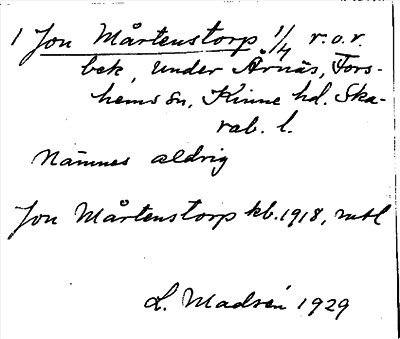 1 Jon Mårtenstorp 1/4 r.o.r.
bek, under Årnäs, Fors-
hems sn, Kinne hd. Ska-
rab. l.
Nämnes aldrig
Jon Mårtenstorp kb. 1918, mtl
L. Madsén 1929